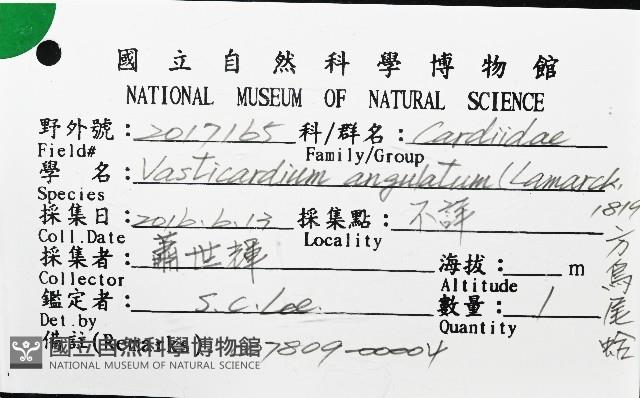 國立自然科學博物館
NATIONAL MUSEUM OF NATURAL SCIENCE
野外號：2017165 科/群名：Cardiidae
Field# Family/Group
學 名：Vasticardium angulatum (Lamarck, 1819
Species
採集日：2016.6.13 採集點：不詳
Coll.Date Locality
採集者：蕭世輝 海拔：____m
Collector Altitude
鑑定者：S.C.Lee 數量：1
Det.by Quantity
方鳥尾蛤
備註(Remarks) 7809-00004
國立自然科學博物館
NATIONAL MUSEUM OF NATURAL SCIENCE